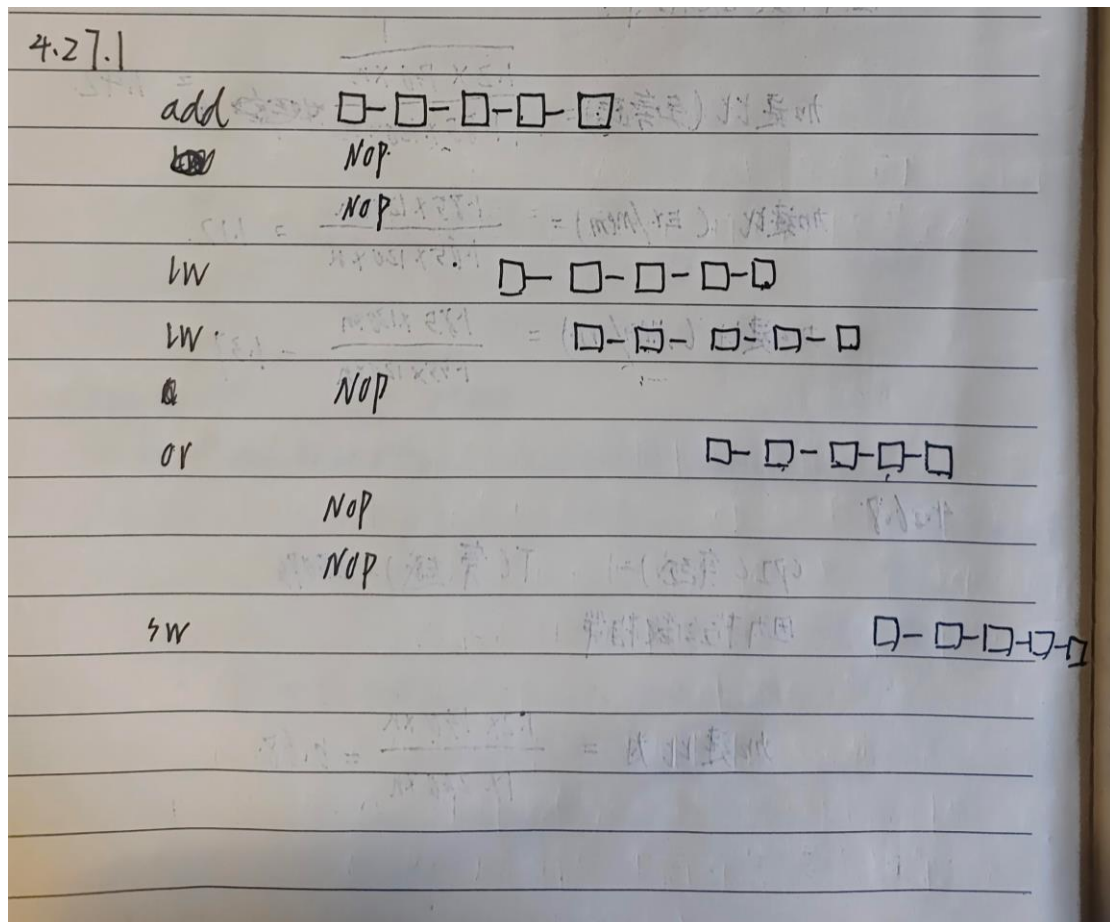 4.27.1
add
NOP
NOP
lw
lw
NOP
or
NOP
NOP
sw